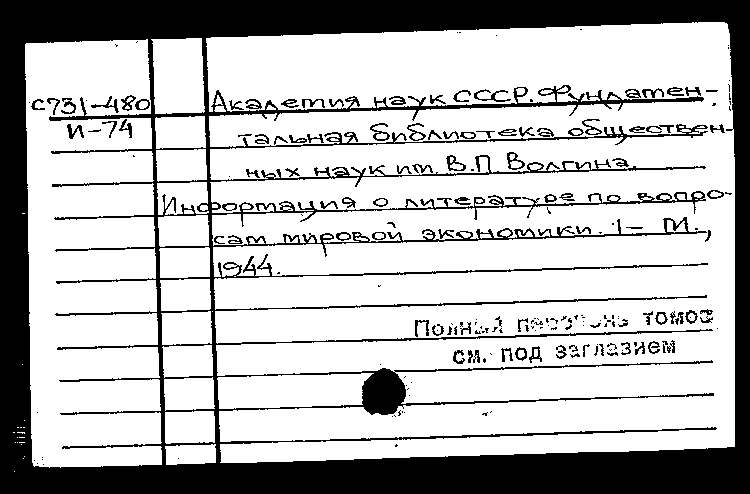 С731-480
И-74
Академия наук СССР. Фундамен-
тальная библиотека обществен-
ных наук им. В.П. Волгина.
Информация о литературе по вопро-
сам мировой экономики. 1- М.,
1944.
Полный перечень томов
см. под заглавием